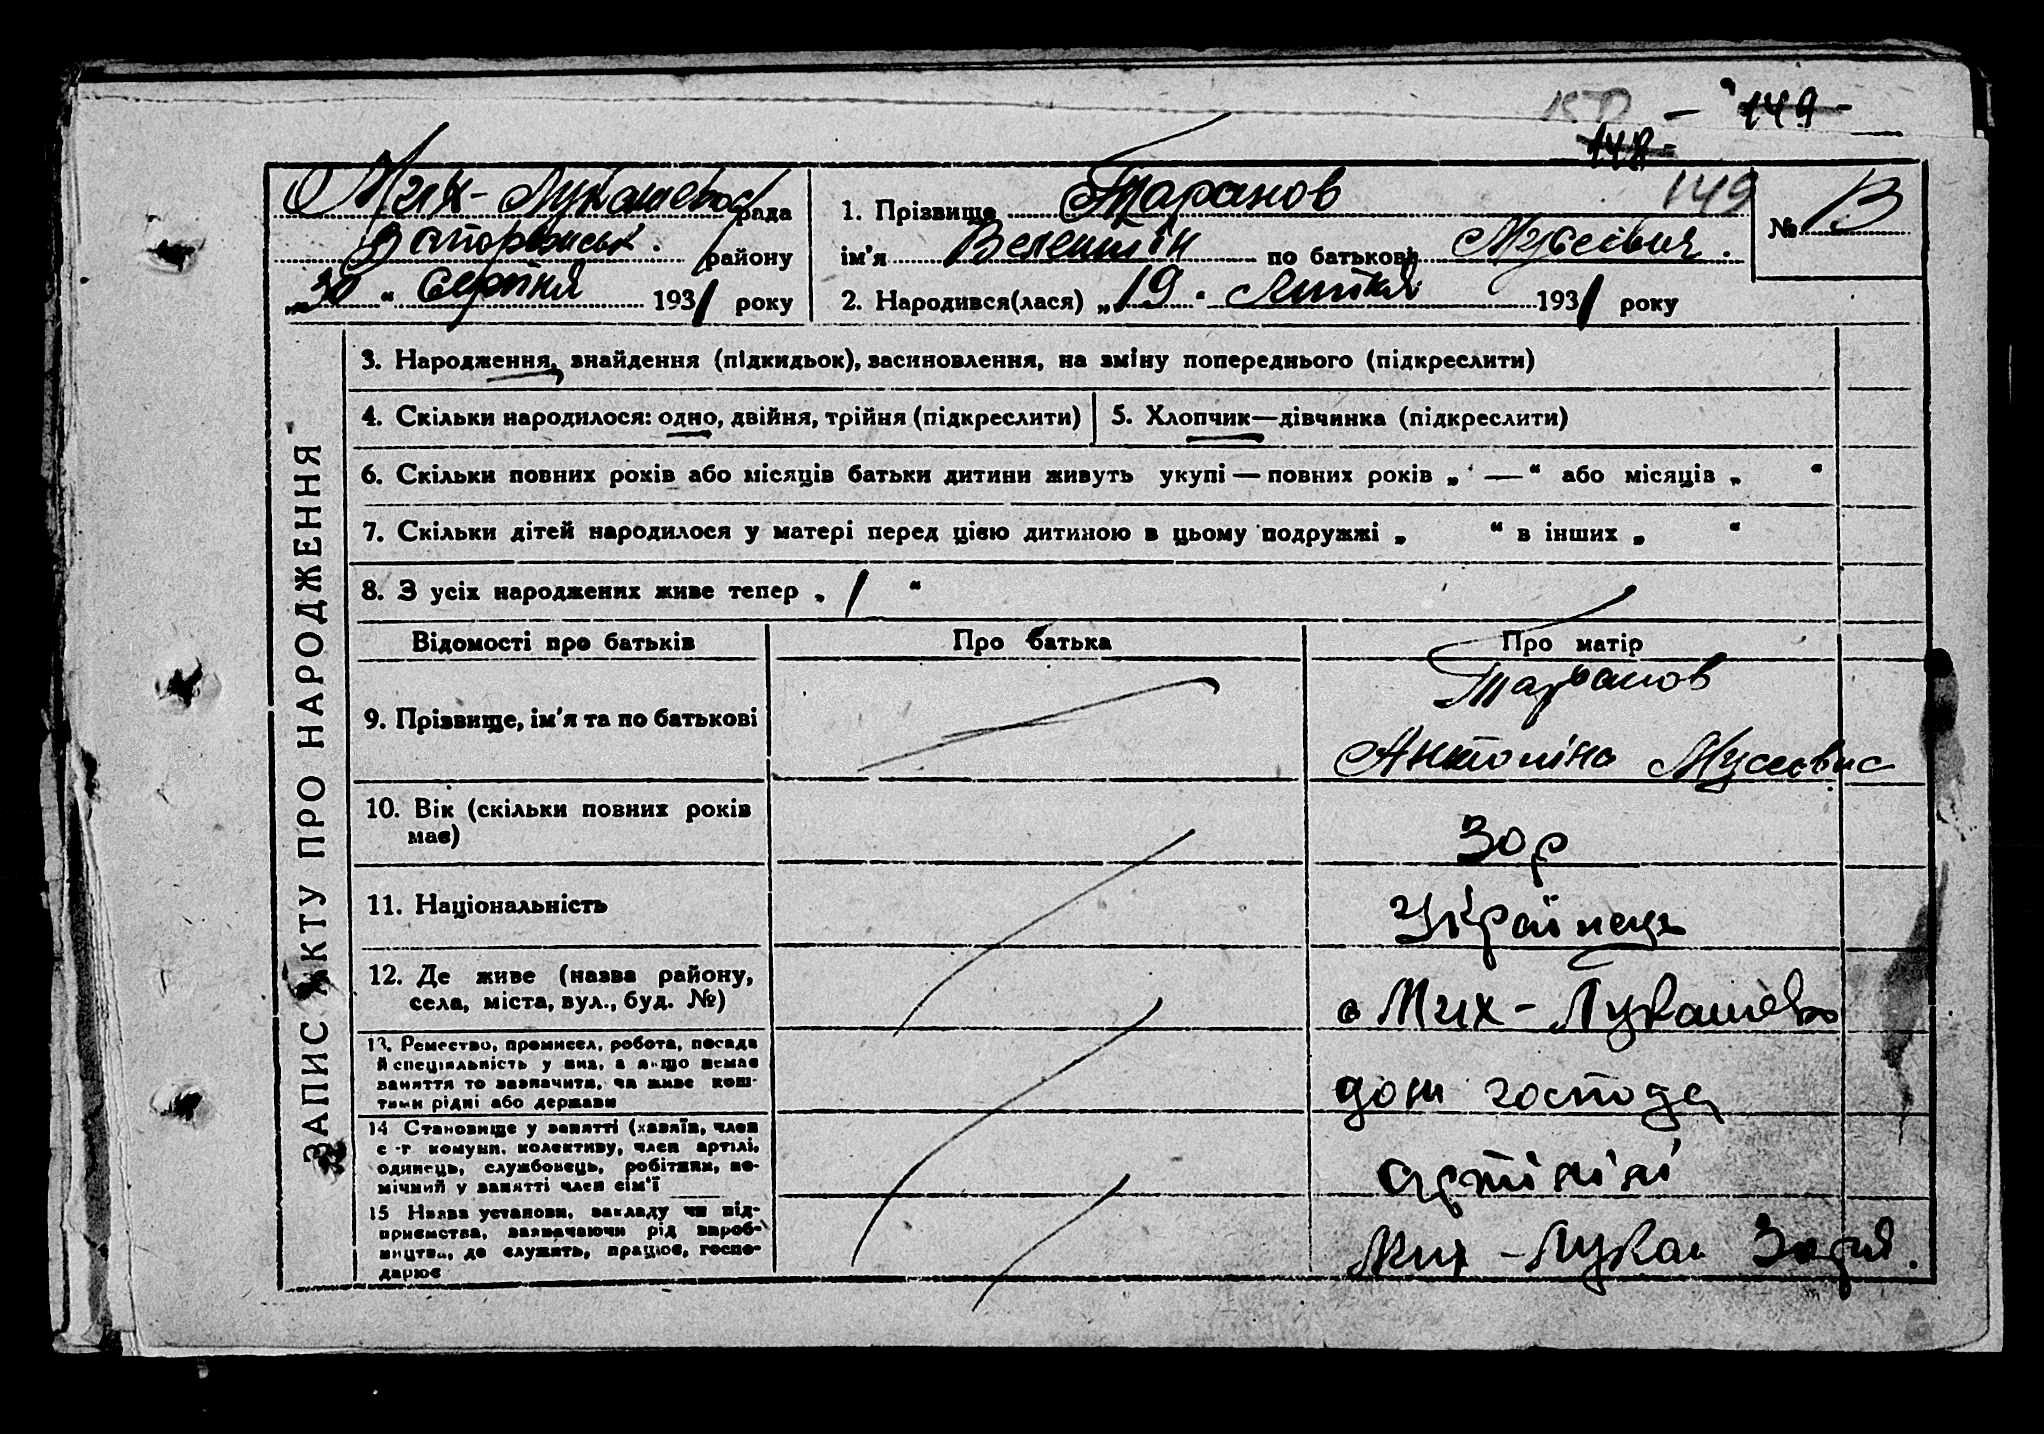 149
148
149
Мих-Лукашевск рада
Запоріжськ. району
„30“ Серпня 1931 року
1. Прізвище Таранов
ім'я Велентін по батькові Мусеівич.
2. Народився(лася) „19“ Липня 1931 року
№ 13
ЗАПИС АКТУ ПРО НАРОДЖЕННЯ
3. Народження, знайдення (підкидьок), засиновлення, на зміну попереднього (підкреслити)
4. Скільки народилося: одно, двійня, трійня (підкреслити)
5. Хлопчик—дівчинка (підкреслити)
6. Скільки повних років або місяців батьки дитини живуть укупі — повних років „ — “ або місяців „ “
7. Скільки дітей народилося у матері перед цією дитиною в цьому подружжі „ “ в інших „ “
8. З усіх народжених живе тепер „ 1 “
Відомості про батьків
Про батька
Про матір
9. Прізвище, ім'я та по батькові
Таранов
Антоніно Мусеовис
10. Вік (скільки повних років
має)
30р
11. Національність
Українець
12. Де живе (назва району,
села, міста, вул., буд. №)
с Мих-Лукашево
13. Ремество, промисел, робота, посада
й спеціяльність у них, а якщо немає
заняття то зазначити, чи живе кош-
тами рідні або держави
дом господа
14 Становище у занятті (хазяїн, член
с.-г комуни, колективу, член артілі,
одинець, службовець, робітник, по-
мічний у занятті член сім'ї
15 Назва установи, закладу чи під-
приємства, зазначаючи рід вироб-
ництва, де служить, працює, госпо-
дарює
Мих-Лукаш